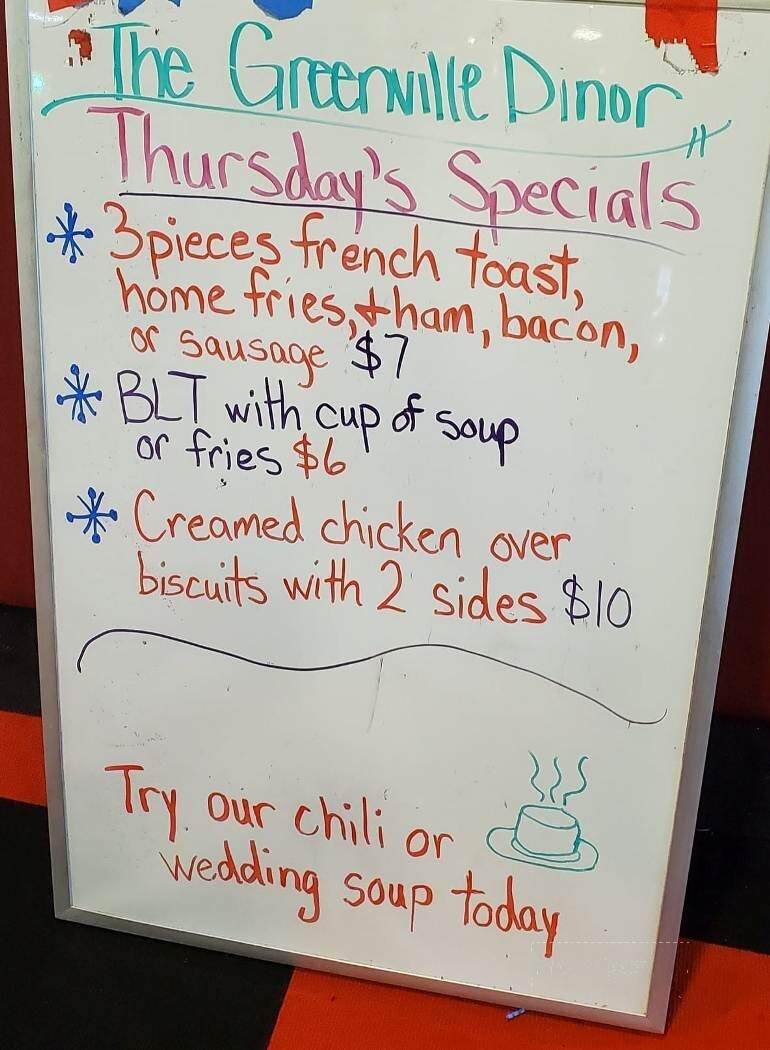 The Greenville Dinor
Thursday's Specials
* 3 pieces french toast,
home fries, + ham, bacon,
or sausage $7
* BLT with cup of soup
or fries $6
* Creamed chicken over
biscuits with 2 sides $10
Try our chili or
wedding soup today